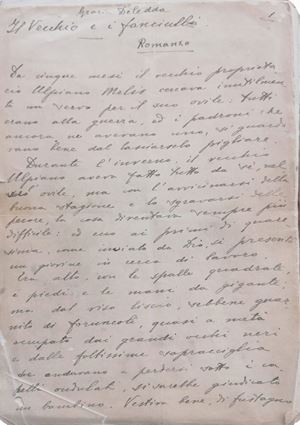 Grazia Deledda
1
Il Vecchio e i fanciulli
Romanzo
Da cinque mesi il vecchio proprieta
rio Ulpiano Melis cercava inutilmen
te un servo per il suo ovile: tutti
erano alla guerra, ed i padroni che
ancora ne avevano uno, si guarda
vano bene dal lasciarselo pigliare.
Durante l'inverno, il vecchio
Ulpiano aveva fatto tutto da sé, nel
ovile, ma con l'avvicinarsi della
buona stagione e lo sgravarsi delle
pecore, la cosa diventava sempre più
difficile: ed ecco ai primi di quare
sima, come inviato da Dio, si presentò
un giovine in cerca di lavoro.
Era alto, con le spalle quadrate,
e piedi e le mani da gigante;
ma dal viso liscio, sebbene guar
nito di foruncoli, quasi a metà
occupato dai grandi occhi neri
e dalle foltissime sopracciglia
che andavano a perdersi sotto i ca
pelli ondulati, si sarebbe giudicato
un bambino. Vestiva bene, di fustagno